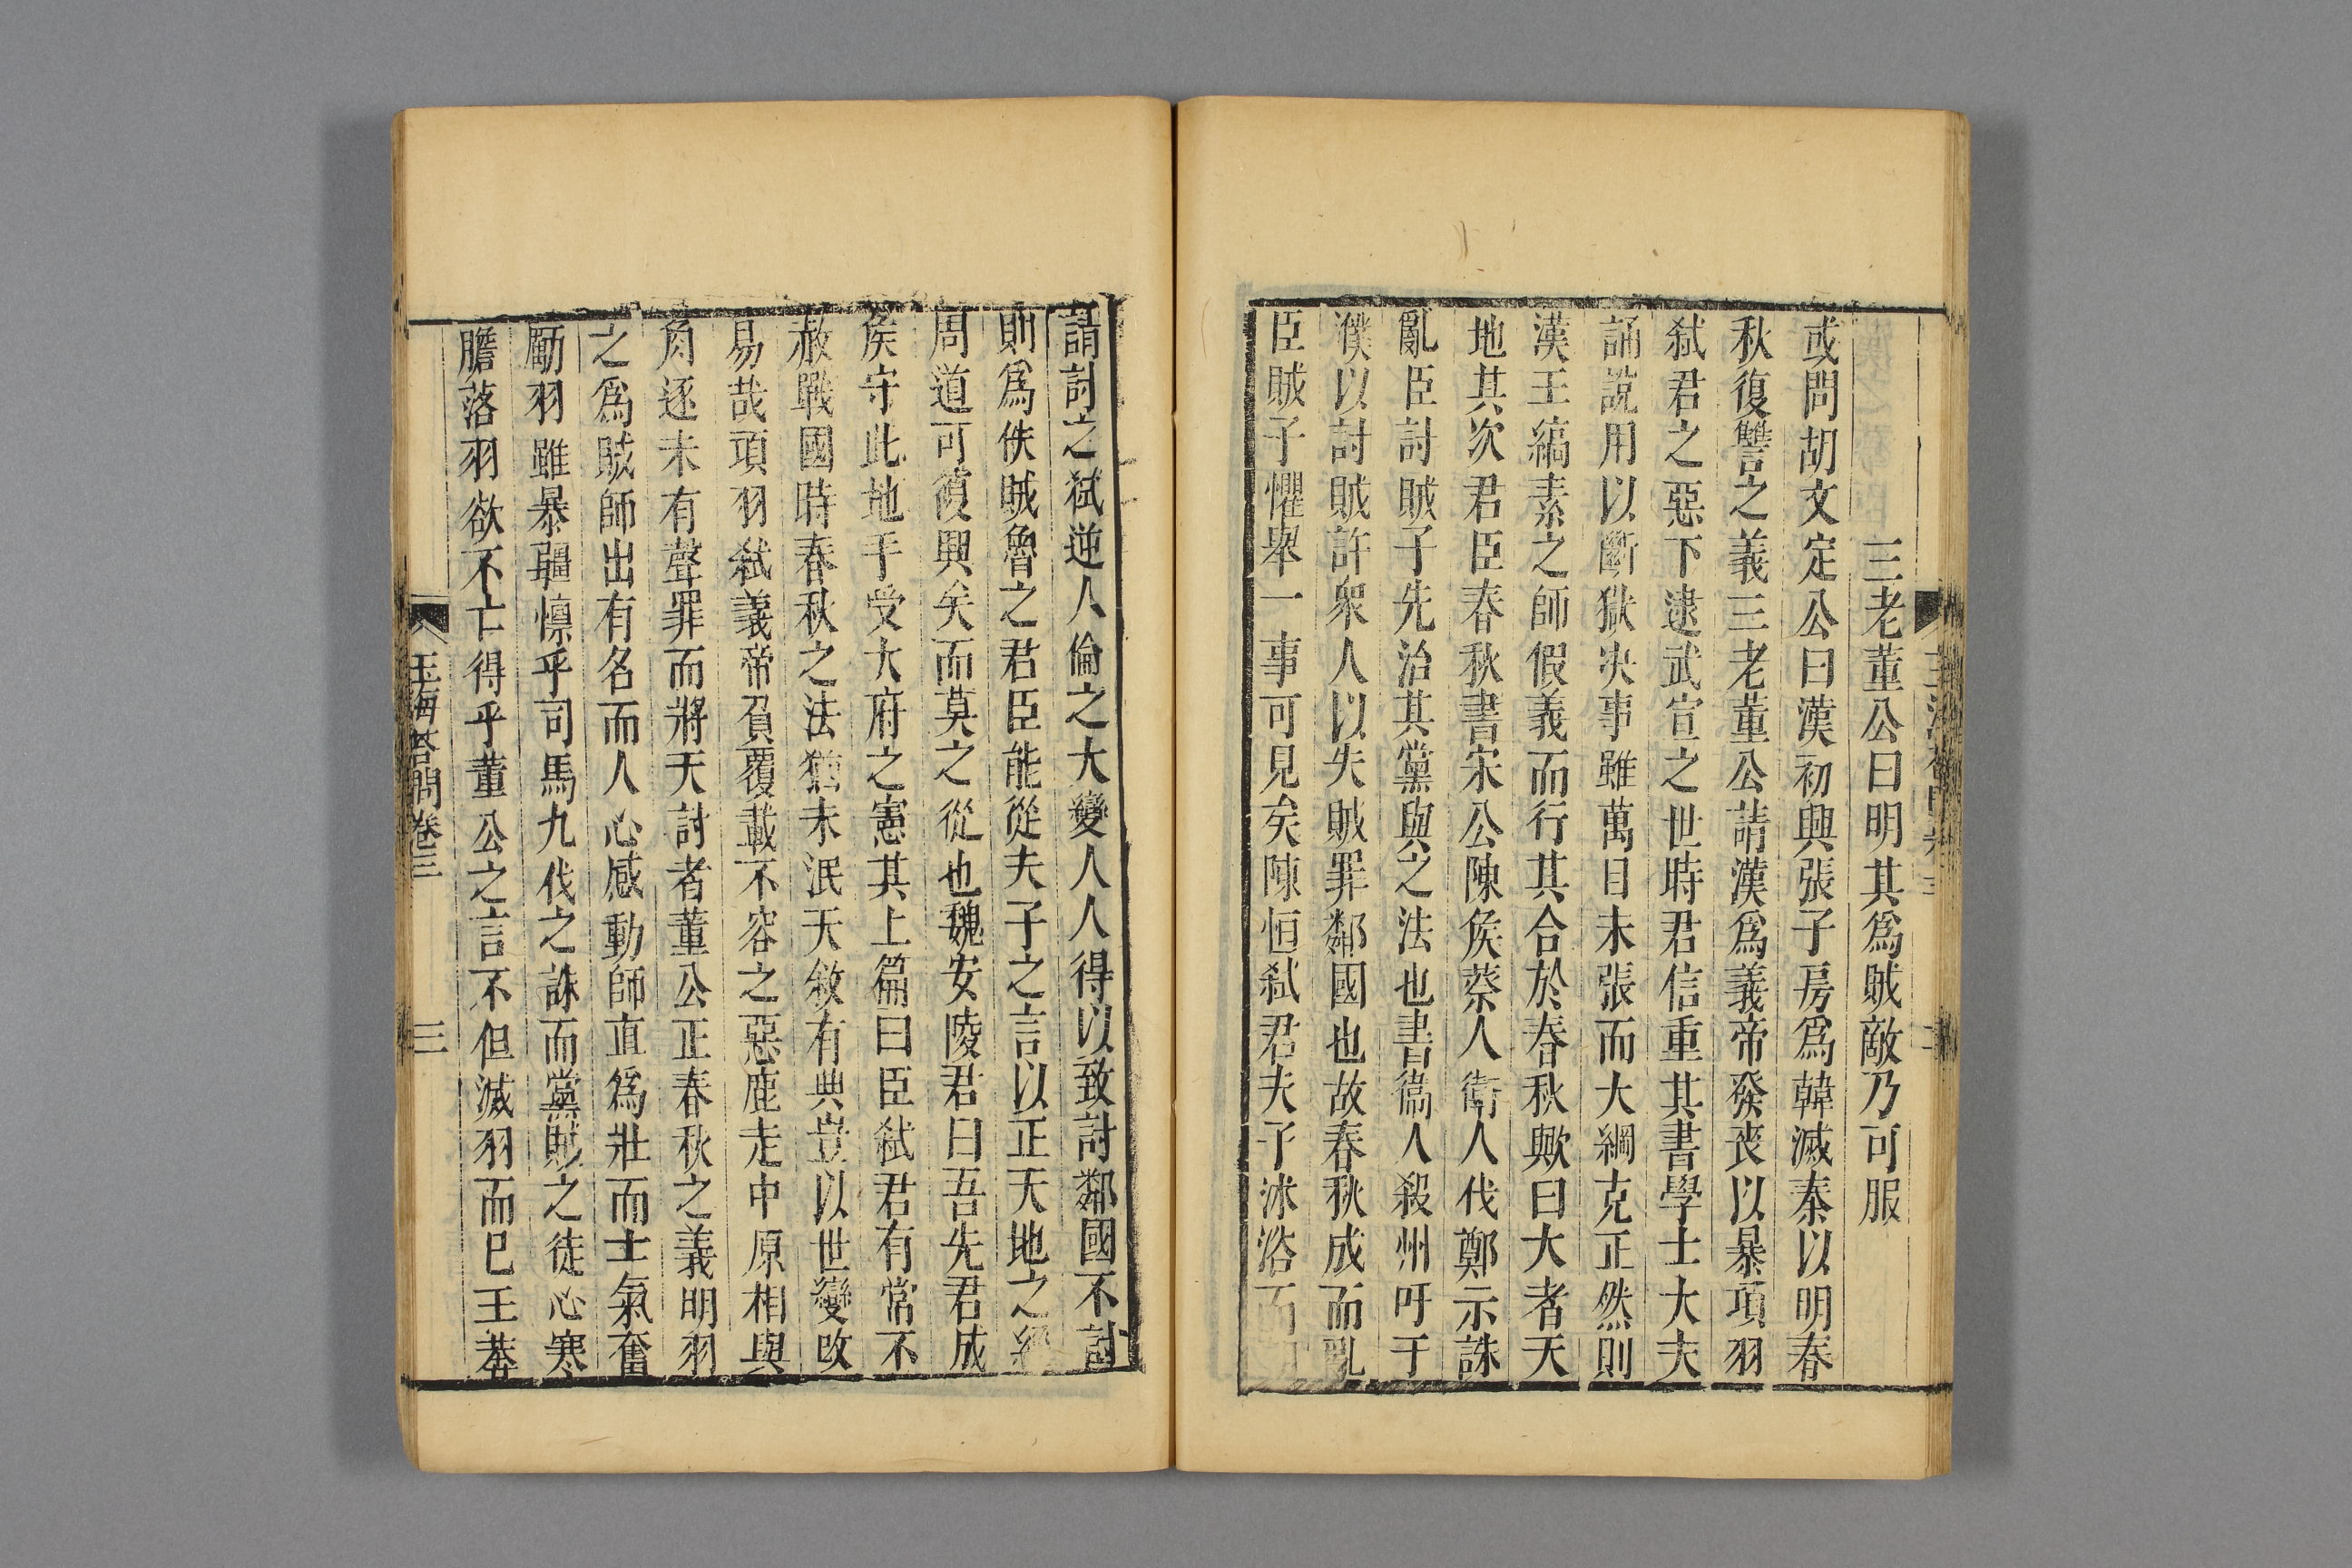 三老董公曰明其爲賊敵乃可服
或問胡文定公曰漢初興張子房爲韓滅秦以明春
秋復讐之義三老董公請漢爲義帝發喪以暴項羽
弑君之惡下逮武宣之世時君信重其書學士大夫
誦說用以斷獄决事雖萬目未張而大綱克正然則
漢王縞素之師假義而行其合於春秋歟曰大者天
地其次君臣春秋書宋公陳侯蔡人衛人伐鄭示誅
亂臣討賊子先治其黨與之法也書衞人殺州吁于
濮以討賊許衆人以失賊罪鄰國也故春秋成而亂
臣賊子懼舉一事可見矣陳恒弑君夫子沐浴而
請討之弑逆人倫之大變人人得以致討鄰國不討
則爲佚賊魯之君臣能從夫子之言以正天地之經
周道可復興矣而莫之從也魏安陵君曰吾先君成
侯守此地手受大府之憲其上篇曰臣弑君有常不
赦戰國時春秋之法猶未泯天敘有典豈以世變改
易哉項羽弑義帝負覆載不容之惡鹿走中原相與
角逐未有聲罪而將天討者董公正春秋之義明羽
之爲賊師出有名而人心感動師直爲壯而士氣奮
勵羽雖暴彊懔乎司馬九伐之誅而黨賊之徒心寒
膽落羽欲不亡得乎董公之言不但滅羽而已王莽
玉海荅問卷三 三